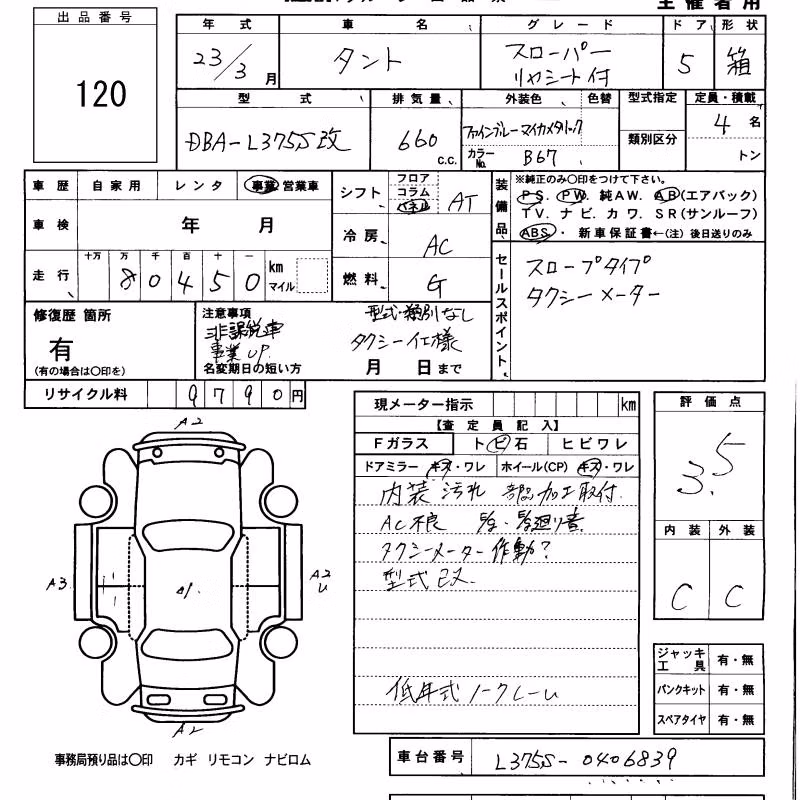 主催者用
出品番号
120
年式 車名 グレード ドア 形状
23/3月 タント スローパー リヤシート付 5 箱
型式 排気量 外装色 色替 型式指定 定員・積載
DBA-L375S改 660 c.c. ファインブルーマイカメタリック 類別区分 4名
カラーNo. B67 トン
車歴 自家用 レンタ 事業 営業車
シフト フロア コラム パネル AT
装備品 ※純正のみ○印をつけて下さい。
PS. PW. 純AW. AB(エアバック)
TV. ナビ. カワ. SR(サンルーフ)
ABS・新車保証書←(注)後日送りのみ
車検 年 月
冷房 AC
走行 十万 万 千 百 十 一
80450 km マイル
燃料 G
セールスポイント
スロープタイプ
タクシーメーター
修復歴 箇所
有
(有の場合は○印を)
注意事項
非課税車
事業UP.
型式・類別なし
タクシー仕様
名変期日の短い方 月 日まで
リサイクル料 9790円
現メーター指示 km
【査定員記入】
Fガラス トビ石 ヒビワレ
ドアミラー キズ・ワレ ホイール(CP) キズ・ワレ
内装汚れ 加工取付.
AC不良
タクシーメーター作動?
型式改.
低年式ノークレーム
評価点
3.5
内装 外装
C C
A2
A3
A2
U
A2
ジャッキ工具 有・無
パンクキット 有・無
スペアタイヤ 有・無
事務局預り品は○印 カギ リモコン ナビロム
車台番号 L375S-0406839